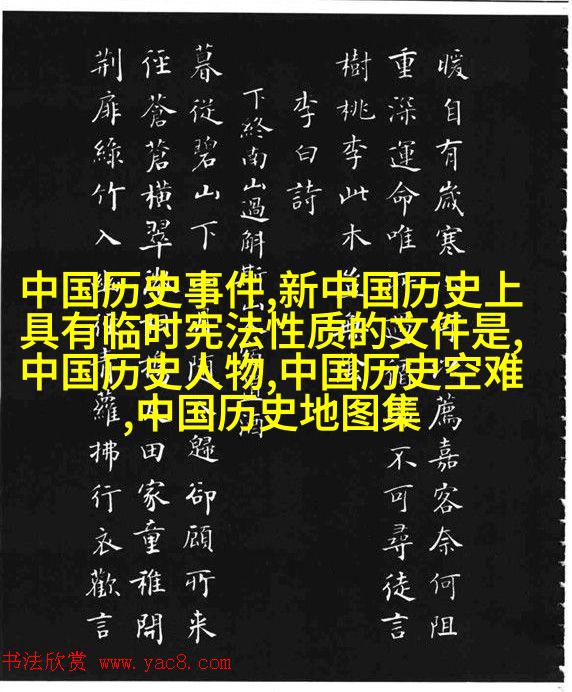 中国历史事件,新中国历史上
具有临时宪法性质的文件是,
中国历史人物,中国历史空难
,中国历史地图集
暖自有歲寒薦嘉客奈何阻
重深運命唯不可尋徒言
樹桃李此木
李白詩
下終南山過斛斯酒
暮從碧山下隨歸卻顧所来
徑蒼蒼橫翠田家童稚開
荆扉綠竹入蘿拂行衣歡言
书法欣赏 www.yac8.com